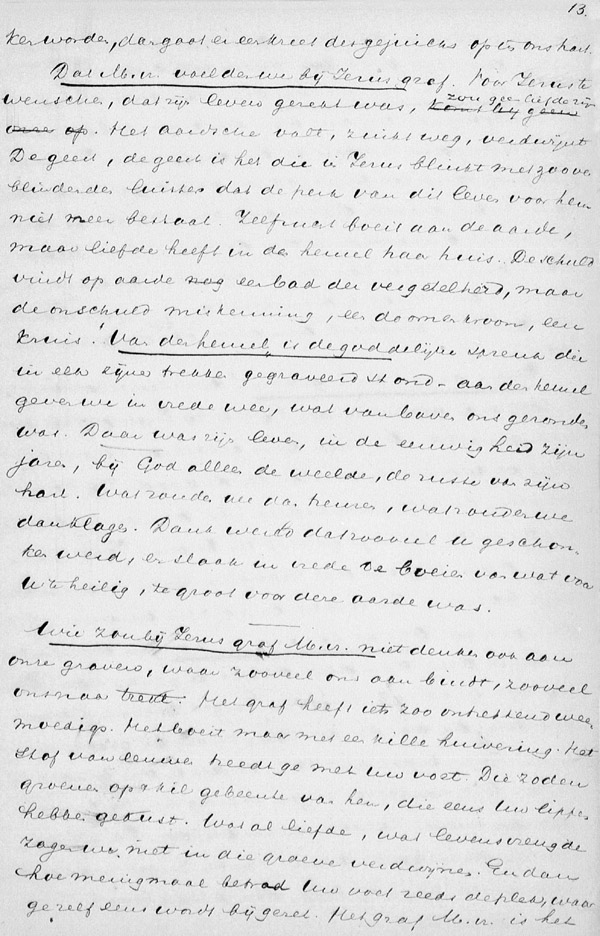 13.
ker worden, dan gaat er een kreet des gejuichs op in ons hart.
Dat M.v. voelden we bij Jezus graf. Voor Jezus te
wenschen, dat zijn leven gerekt was, zou geen liefde zijn
. Het aardsche valt, zinkt weg, verdwijnt
De geest, de geest is het die in Jezus blinkt met zoo ver
blindenden luister dat de perk van dit leven voor hem
niet meer bestaat. Zelfzucht boeit aan de aarde,
maar liefde heeft in den hemel haar huis. De schuld
vindt op aarde nog een bad der vergetelheid, maar
de onschuld miskenning, een doornenkroon, een
kruis! Van den hemel, is de goddelijke spreuk die
in elk zijner trekken gegraveerd stond - aan den hemel
geven we in vrede weer, wat van boven ons gezonden
was. Daar was zijn leven, in de eeuwigheid zijn
jaren, bij God alleen de weelde, de rust van zijn
hart. Wat zouden we dan treuren, wat zouden we
dan klagen. Dank veeleer dat zooveel u geschon-
ken werd, en slaak in vrede de boeien van wat voor
u te heilig, te groot voor deze aarde was.
Wie zou bij Jezus graf M.v. niet denken ook aan
onze graven, waar zooveel ons aan bindt, zooveel
ons naar trekt. Het graf heeft iets zoo ontzettend wee-
moedigs. Het boeit maar met een kille huivering. Het
stof van eeuwen treedt ge met uw voet. Die zoden
groenen op 't kil gebeente van hen, die eens uw lippen
hebben gekust. Wat al liefde, wat levensvreugde
zagen we niet in die groeve verdwijnen. En dan
hoe menigmaal betrad uw voet reeds de plek, waar
ge zelf eens wordt bijgezet. Het graf M.v. is het